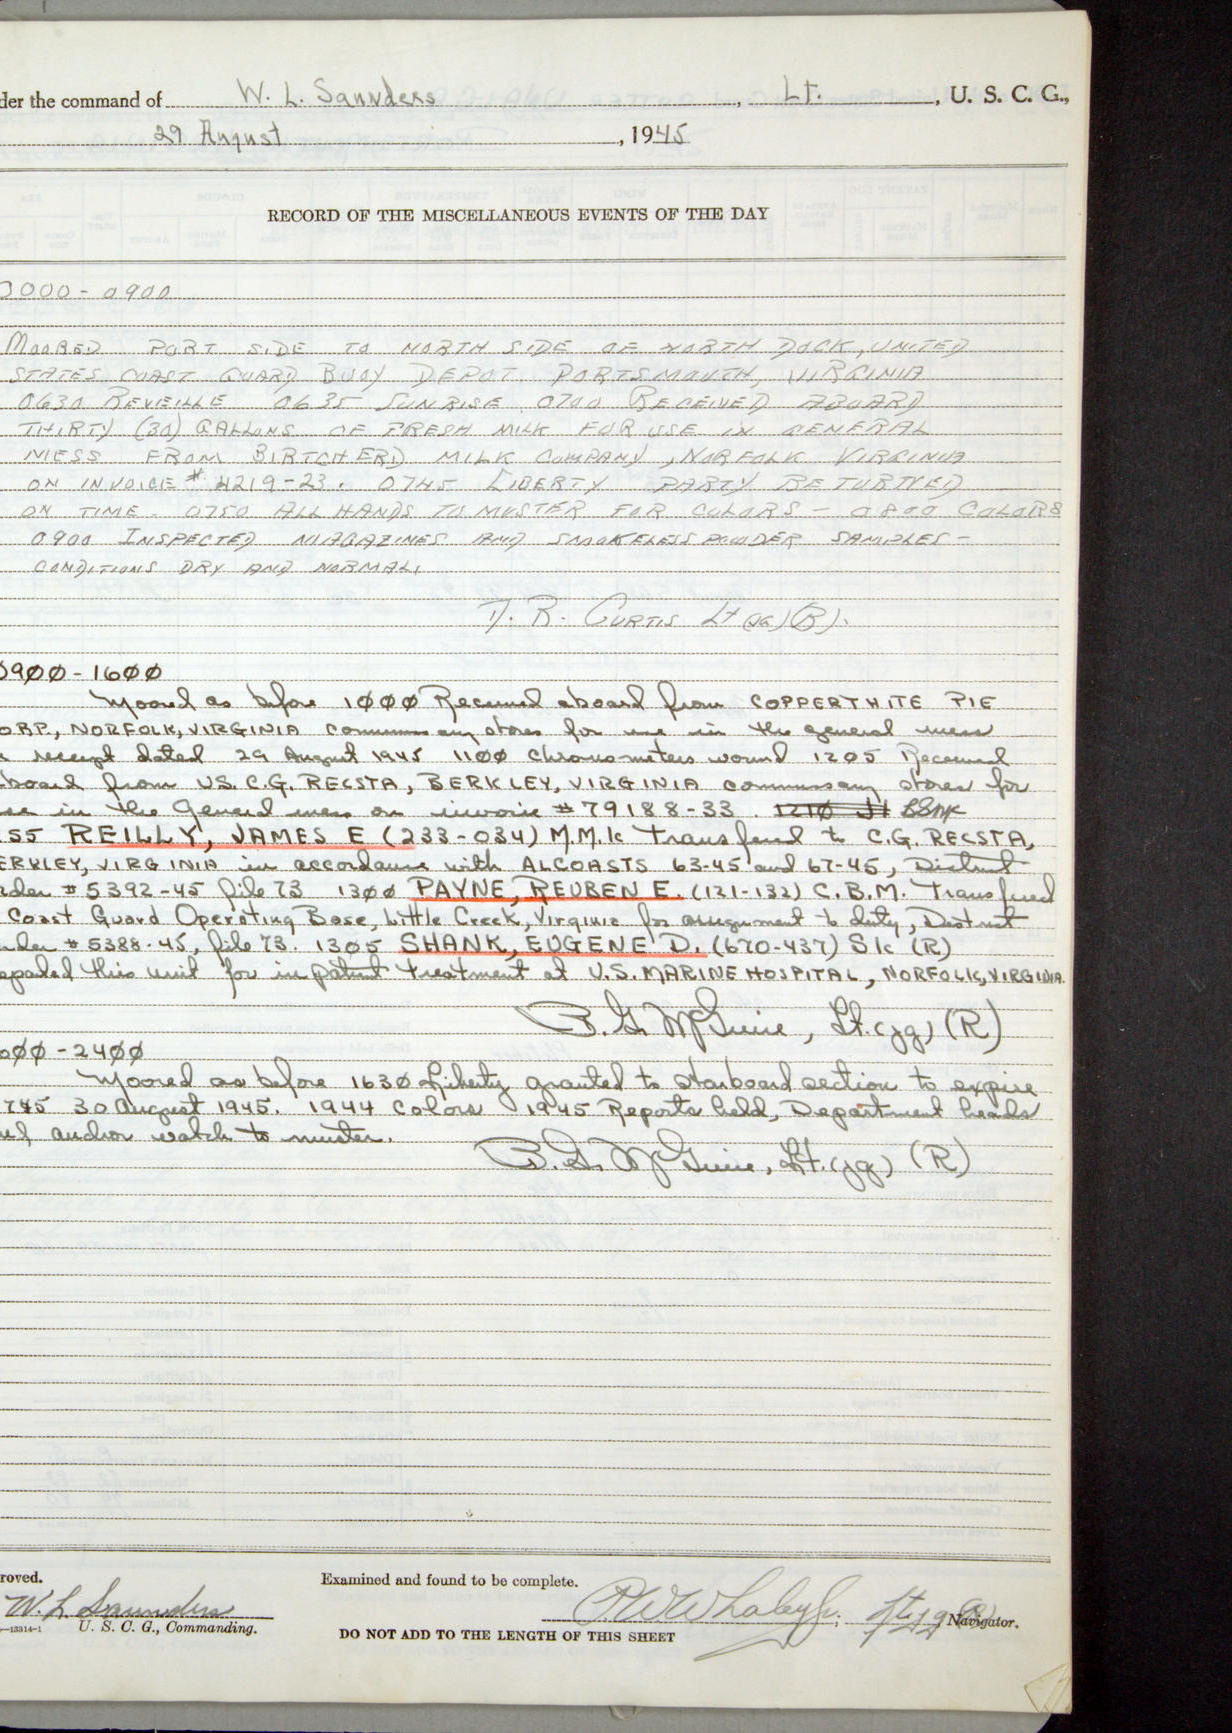 der the command of W. L. Saunders, Lt., U. S. C. G.,
29 August, 1945
RECORD OF THE MISCELLANEOUS EVENTS OF THE DAY
0000-0900
MOORED PORT SIDE TO NORTH SIDE OF NORTH DOCK, UNITED
STATES COAST GUARD BUOY DEPOT, PORTSMOUTH, VIRGINIA
0630 REVEILLE 0635 SUNRISE, 0700 RECEIVED ABOARD
THIRTY (30) GALLONS OF FRESH MILK FOR USE IN GENERAL
MESS FROM BIRTCHERD MILK COMPANY, NORFOLK VIRGINIA
ON INVOICE # 4219-23. 0745 LIBERTY PARTY RETURNED
ON TIME. 0750 ALL HANDS TO MUSTER FOR COLORS - 0800 COLORS
0900 INSPECTED MAGAZINES AND SMOKELESS POWDER SAMPLES -
CONDITIONS DRY AND NORMAL.
D. R. CURTIS Lt (JG) (R).
0900-1600
Moored as before 1000 Received aboard from COPPERTHITE PIE
ORP., NORFOLK, VIRGINIA commissary stores for use in the general mess
receipt dated 29 August 1945 1100 Chronometers wound 1205 Received
board from U.S.C.G. RECSTA, BERKLEY, VIRGINIA commissary stores for
se in the General mess on invoice # 79188-33.
55 REILLY, JAMES E (233-034) M.M.1c Transferred to C.G. RECSTA,
ERKLEY, VIRGINIA in accordance with ALCOASTS 63-45 and 67-45, District
rder # 5392-45 file 73 1300 PAYNE, REUBEN E. (121-132) C.B.M. Transfered
Coast Guard Operating Base, Little Creek, Virginia for assignment to duty, District
rder # 5388-45, file 73. 1305 SHANK, EUGENE D. (670-437) S1c (R)
eparted this unit for in patient treatment at U.S. MARINE HOSPITAL, NORFOLK, VIRGINIA.
B. G. McGuire, Lt. (jg) (R)
600-2400
Moored as before 1630 Liberty granted to starboard section to expire
745 30 August 1945. 1944 Colors 1945 Reports held, Department heads
and anchor watch to muster.
B. G. McGuire, Lt. (jg) (R)
roved.
Examined and found to be complete.
W. L. Saunders
U. S. C. G., Commanding.
Navigator.
-13314-1
DO NOT ADD TO THE LENGTH OF THIS SHEET